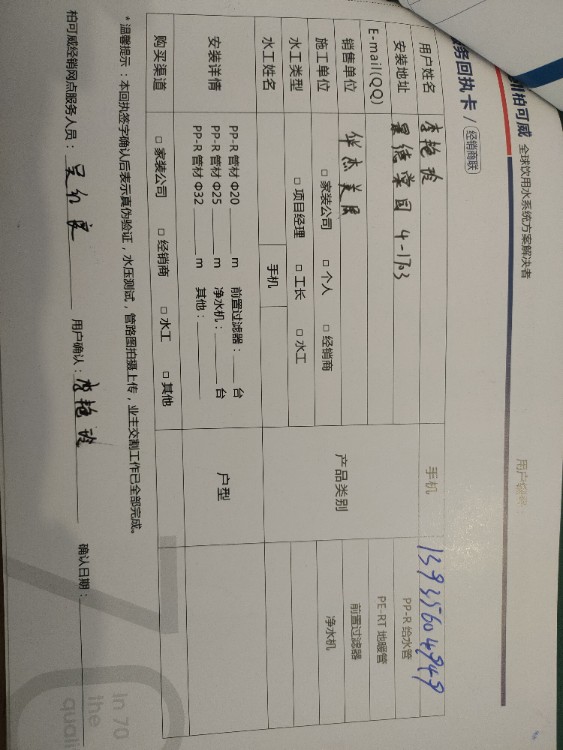 柏可威 全球饮用水系统方案解决者
务回执卡 / 经销商联
用户姓名 李艳霞 手机
安装地址 景德荣园 4-1703 PP-R 给水管
E-mail(QQ) PE-RT 地暖管
销售单位 华杰美居 产品类别 前置过滤器
施工单位 □ 家装公司 □ 个人 □ 经销商 净水机
水工类型 □ 项目经理 □ 工长 □ 水工
水工姓名 手机
安装详情 PP-R 管材 Φ20 m 前置过滤器： 台 户型
PP-R 管材 Φ25 m 净水机： 台
PP-R 管材 Φ32 m 其他：
购买渠道 □ 家装公司 □ 经销商 □ 水工 □ 其他
*温馨提示：本回执签字确认后表示真伪验证，水压测试，管路图拍摄上传，业主交割工作已全部完成。
柏可威经销网点服务人员： 用户确认：李艳霞 确认日期：
In 70
the
quali